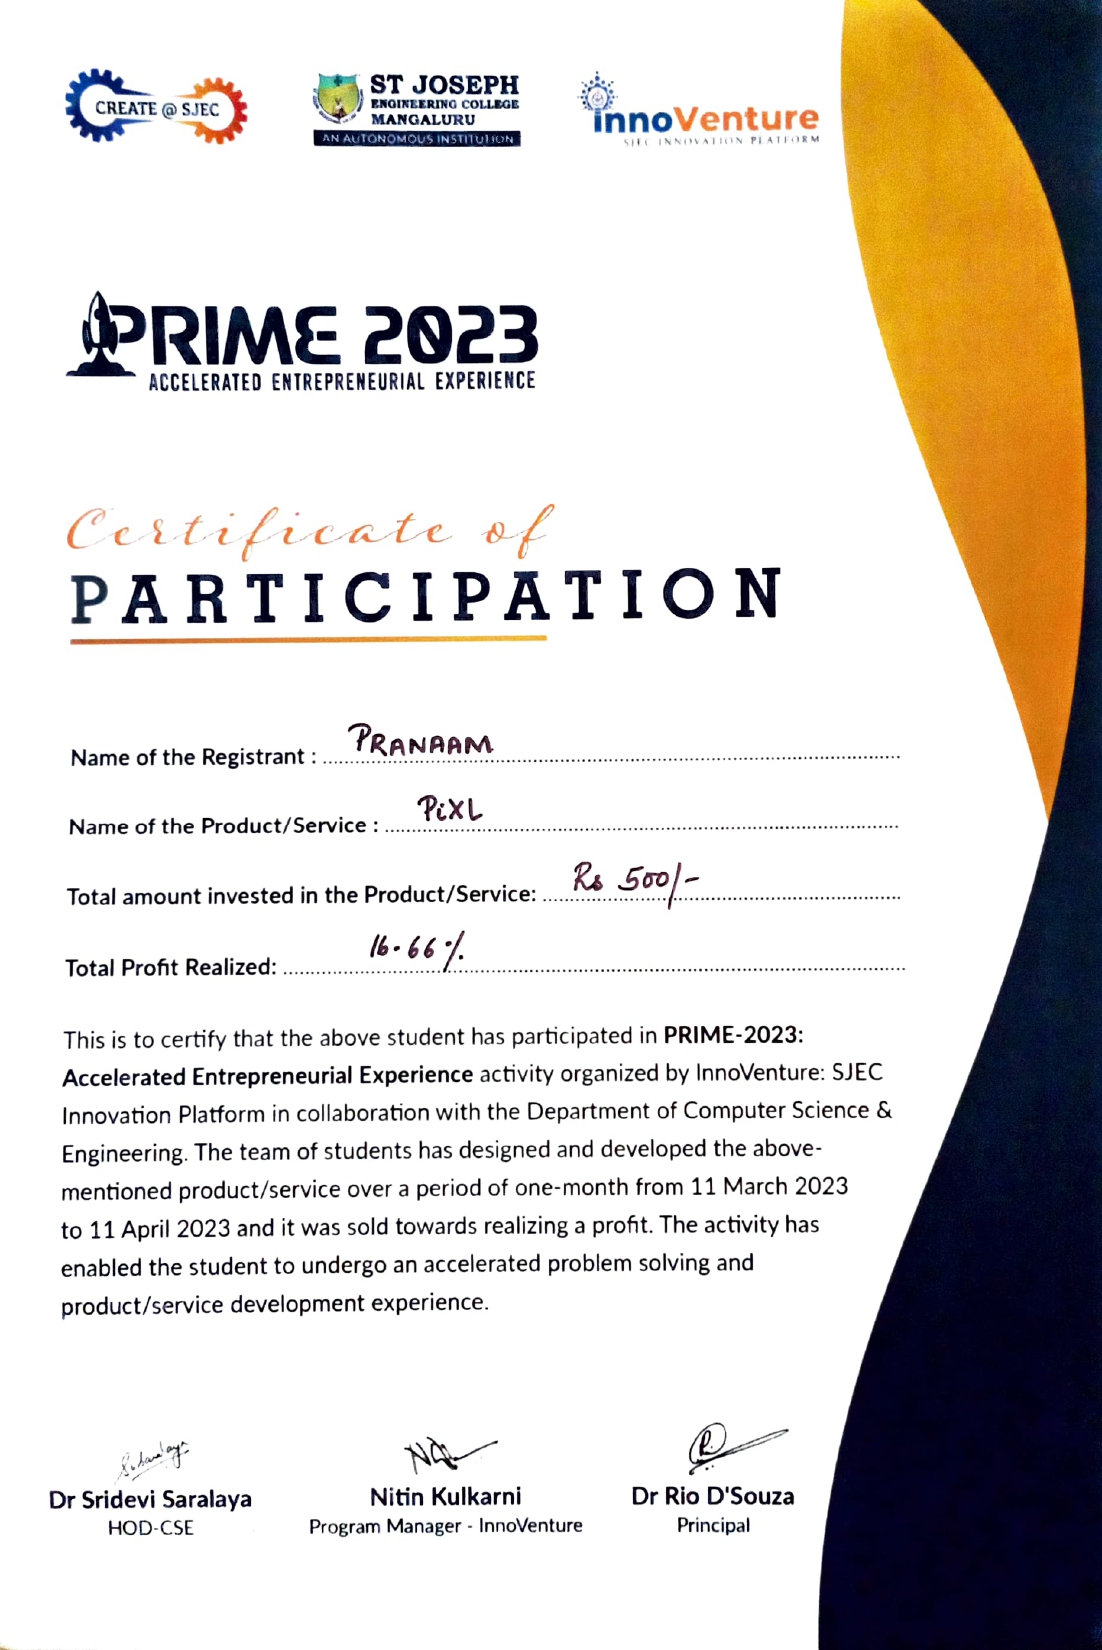 CREATE @ SJEC
ST JOSEPH
ENGINEERING COLLEGE
MANGALURU
AN AUTONOMOUS INSTITUTION
innoVenture
SJEC INNOVATION PLATFORM
PRIME 2023
ACCELERATED ENTREPRENEURIAL EXPERIENCE
Certificate of
PARTICIPATION
Name of the Registrant : PRANAAM
Name of the Product/Service : PiXL
Total amount invested in the Product/Service: Rs 500/-
Total Profit Realized: 16.66%
This is to certify that the above student has participated in PRIME-2023:
Accelerated Entrepreneurial Experience activity organized by InnoVenture: SJEC
Innovation Platform in collaboration with the Department of Computer Science &
Engineering. The team of students has designed and developed the above-
mentioned product/service over a period of one-month from 11 March 2023
to 11 April 2023 and it was sold towards realizing a profit. The activity has
enabled the student to undergo an accelerated problem solving and
product/service development experience.
Dr Sridevi Saralaya
HOD-CSE
Nitin Kulkarni
Program Manager - InnoVenture
Dr Rio D'Souza
Principal